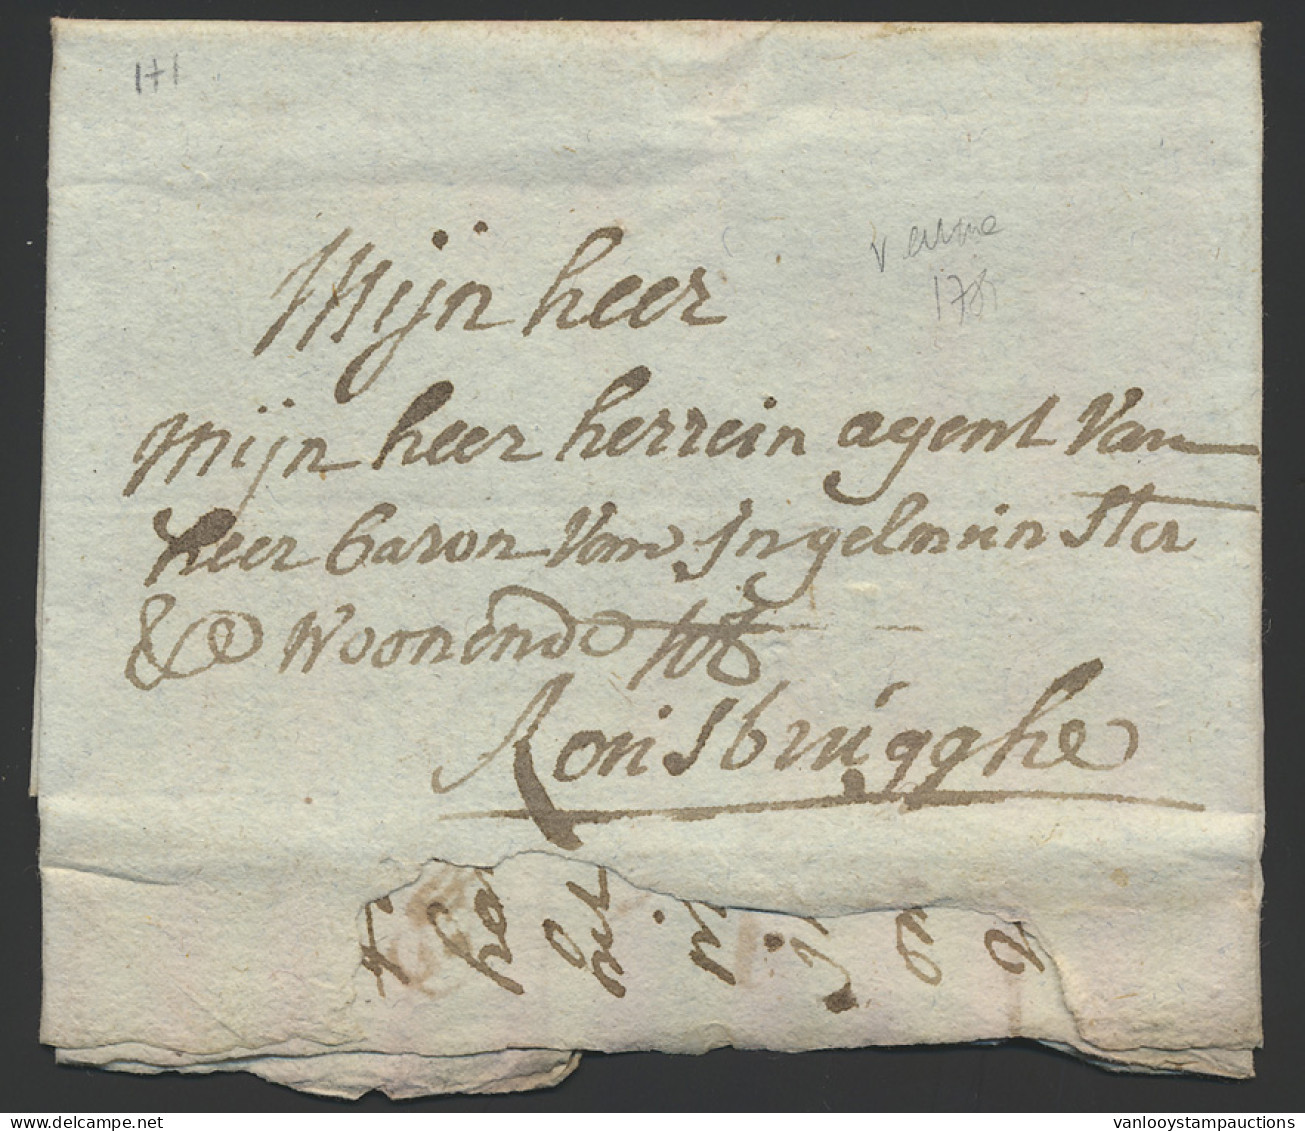 1+1
Veurne
178
Mijn heer
Mijn heer herrein agent Van
heer baron Van Ingelmuinster
& woonende tot
Rousbrugghe
vanlooystampauctions